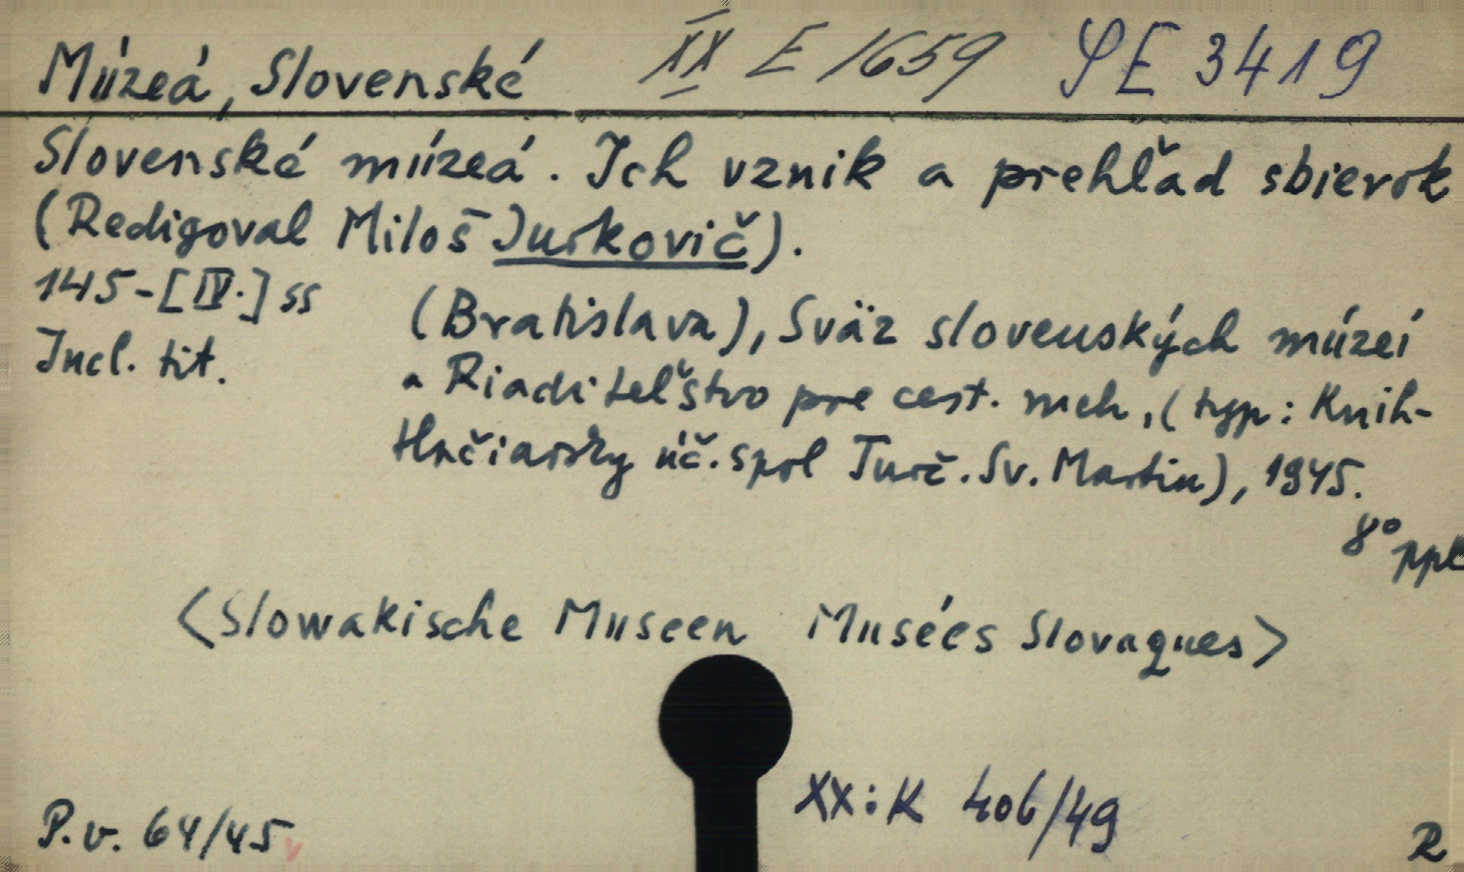 Múzeá, Slovenské XX E 1659 SE 3419
Slovenské múzeá. Ich vznik a prehľad sbierok
(Redigoval Miloš Jurkovič).
145-[IV.] ss
Incl. tit.
(Bratislava), Sväz slovenských múzeí
a Riaditeľstvo pre cest. ruch, (typ: Knih-
tlačiarsky úč. spol Turč. Sv. Martin), 1945.
8° ppl
<Slowakische Museen Musées Slovaques>
XX:K 406/49
P.v. 64/45
R